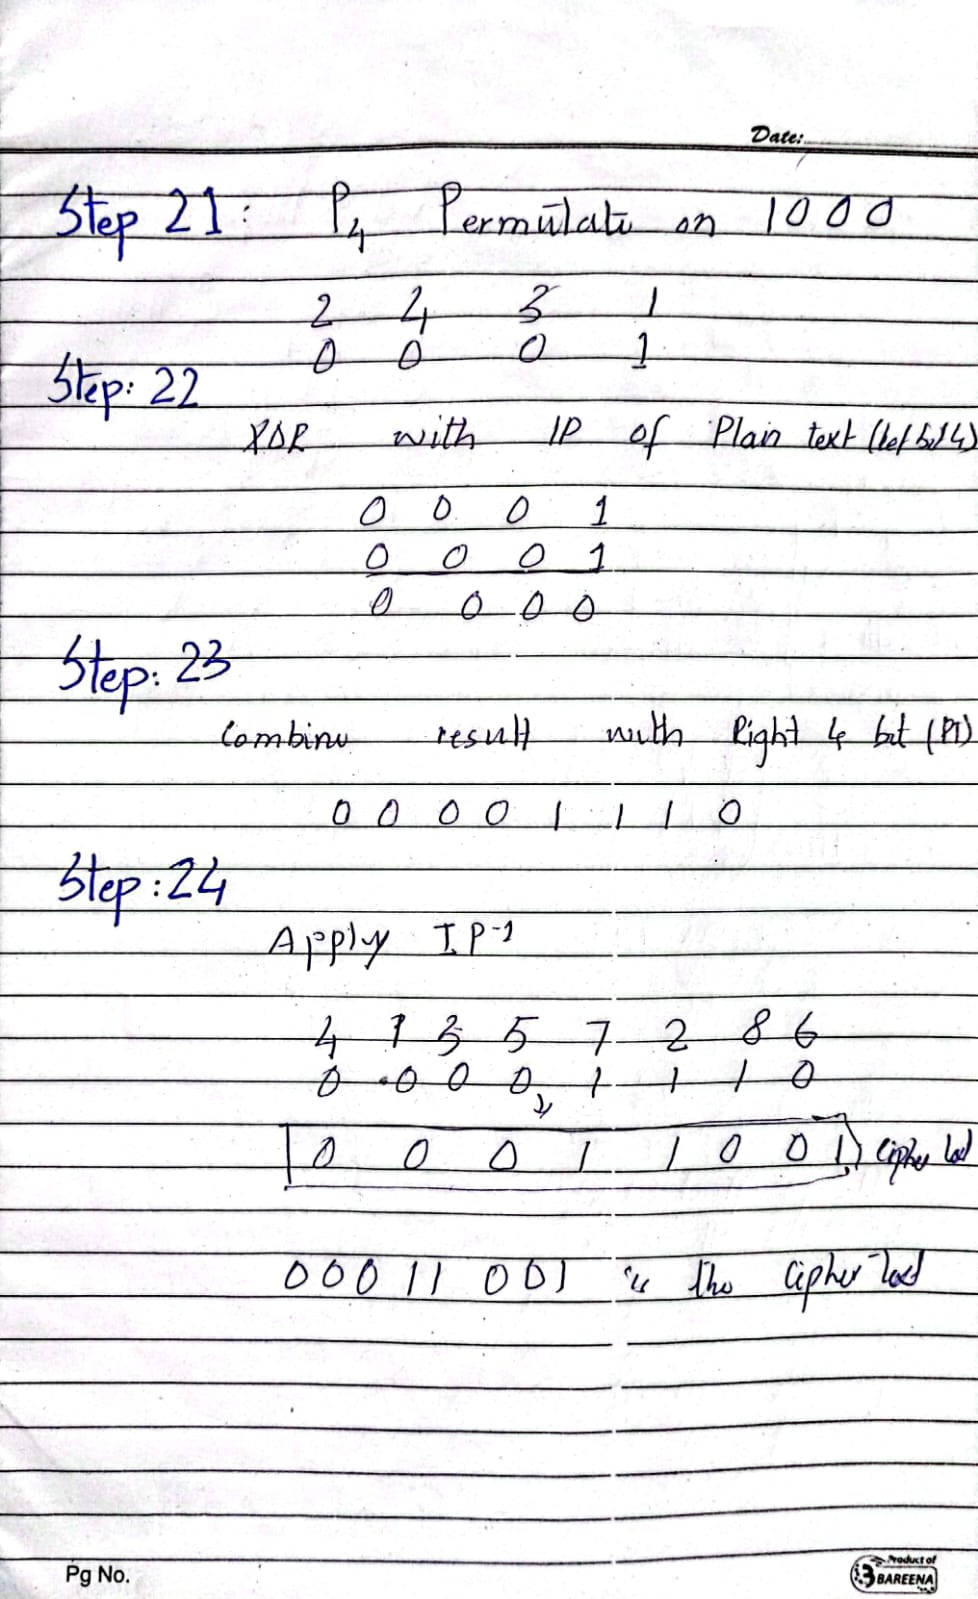 Date:
Step 21: P4 Permutate on 1000
2 4 3 1
0 0 0 1
Step: 22
XOR with IP of Plain text (lef bit 4)
0 0 0 1
0 0 0 1
0 0 0 0
Step: 23
Combine result with Right 4 bit (PT)
0 0 0 0 1 1 1 0
Step: 24
Apply IP-1
4 1 3 5 7 2 8 6
0 0 0 0 1 1 1 0
0 0 0 1 1 0 0 1 Cipher text
00011 001 is the Cipher text
Pg No.
Product of
BAREENA